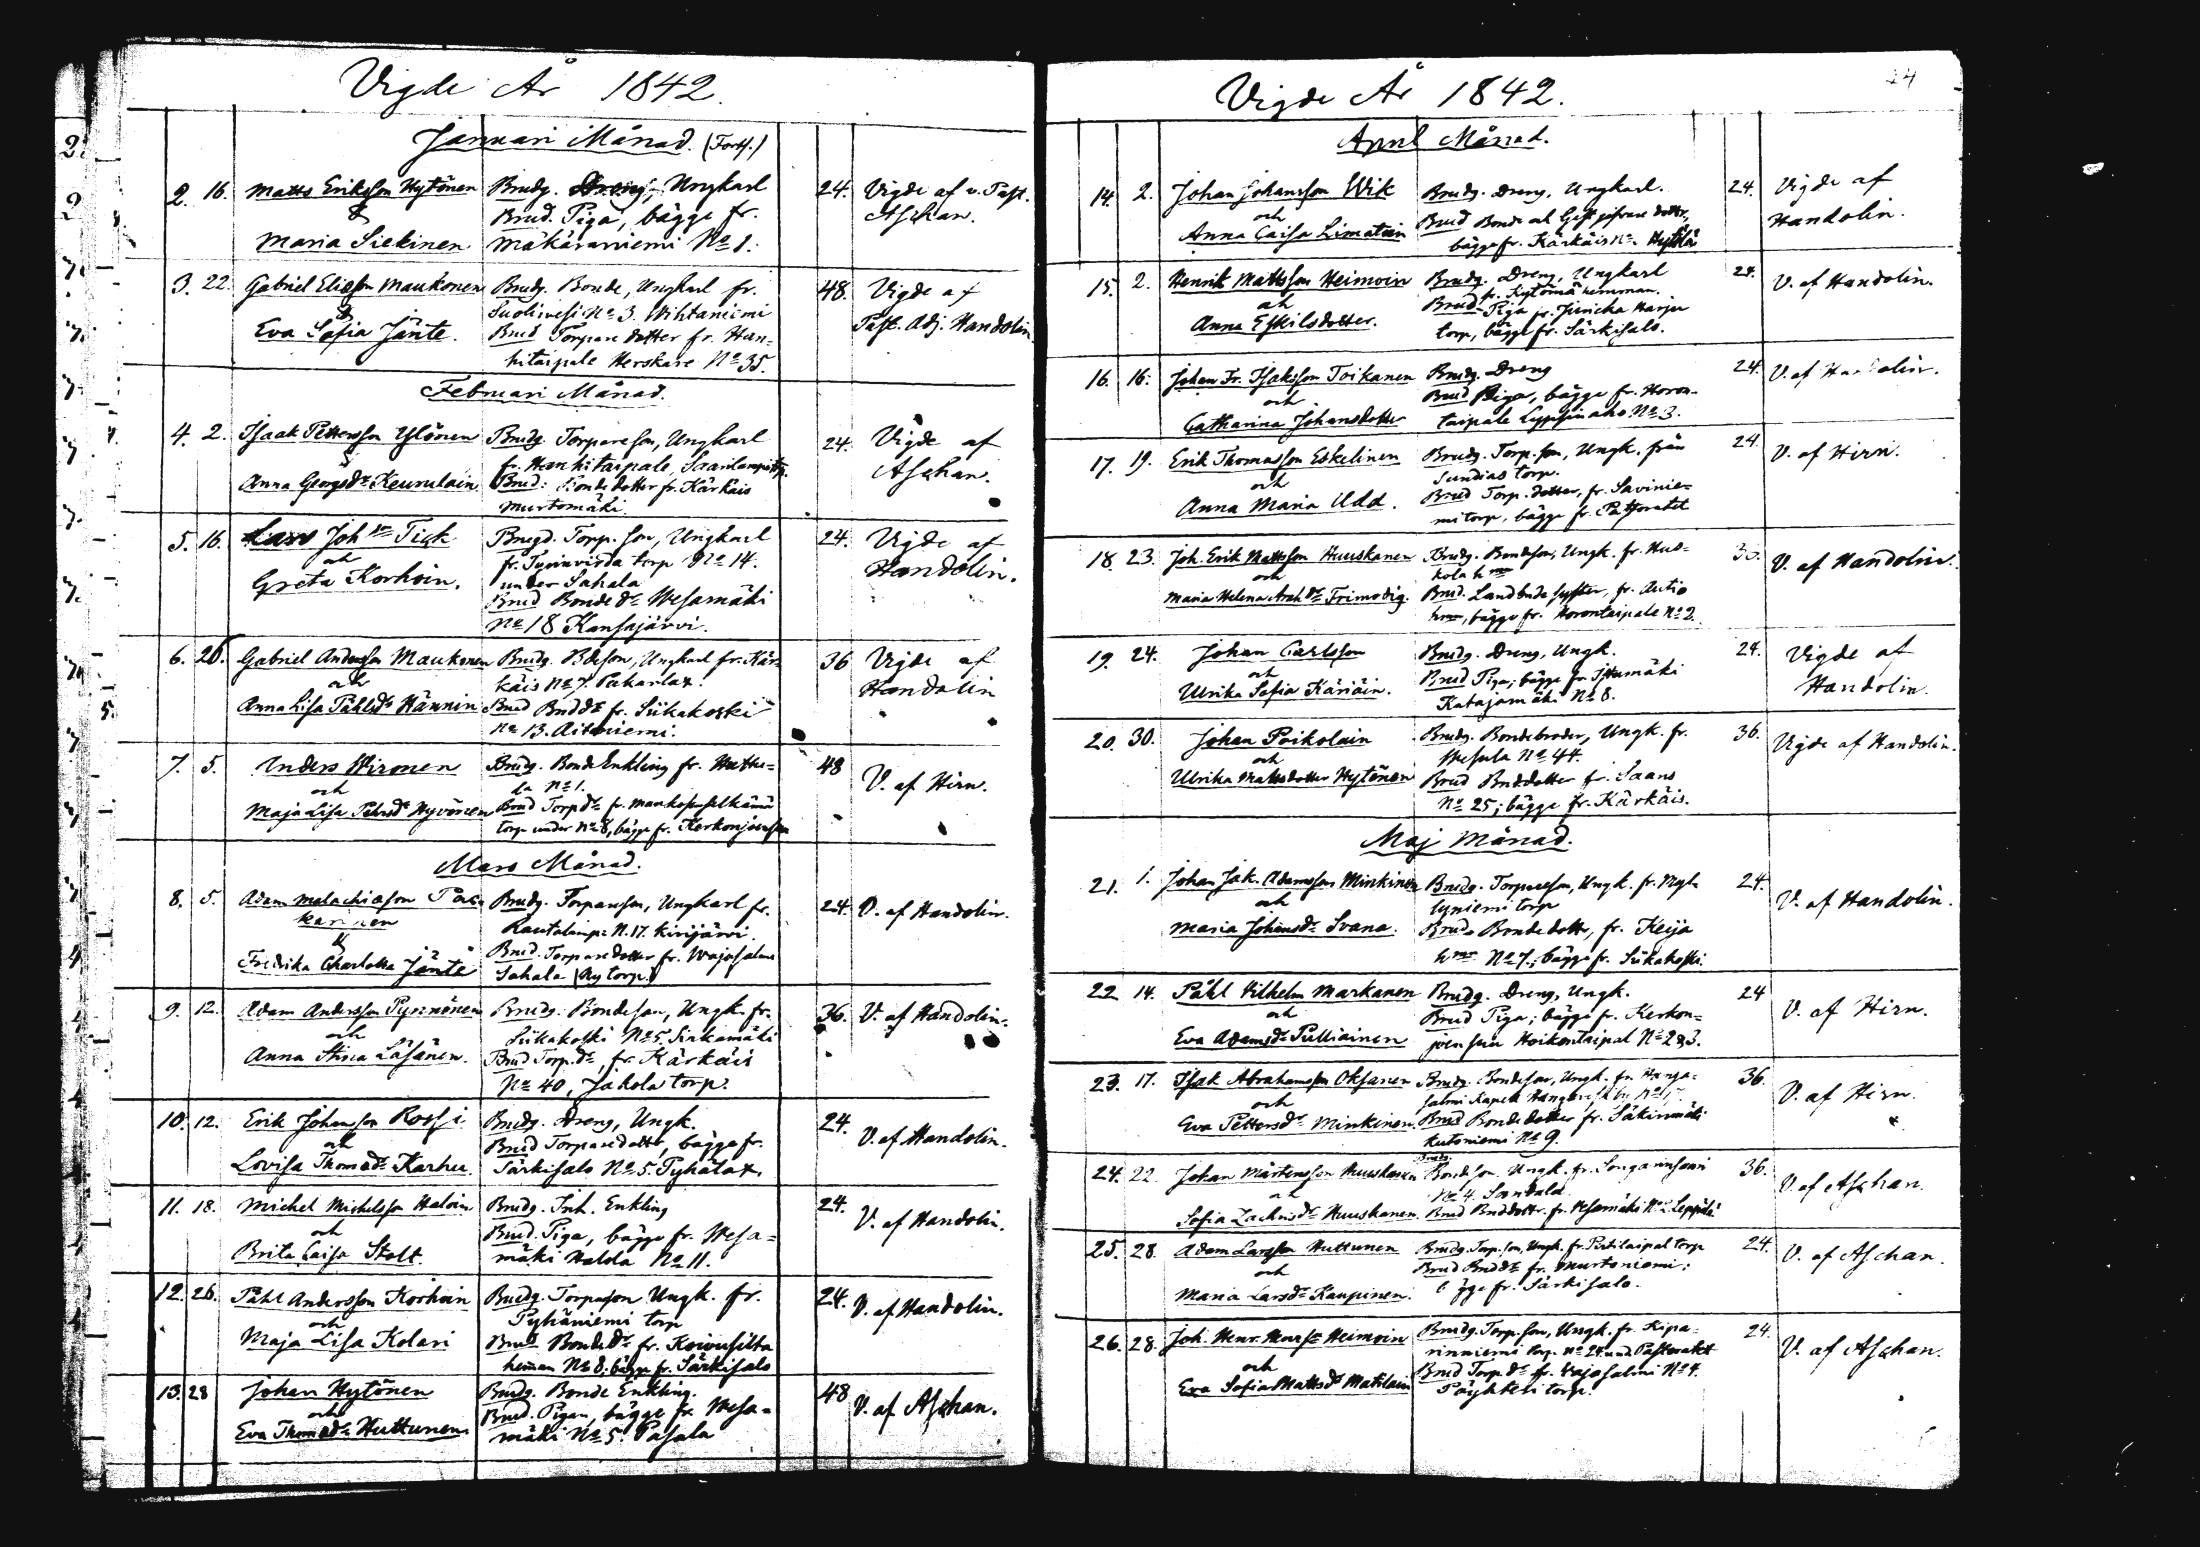 Vigde År 1842.
Januari Månad. (Forts.)
2. 16. Matts Eriksson Hytönen
&
Maria Siekinen
Brudg. Dreng, Ungkarl
Brud. Piga, bägge fr.
Mäkäraniemi No 1.
24. Vigde af v. Past.
Aschan.
3. 22. Gabriel Eliasson Maukonen
&
Eva Sofia Jänte.
Brudg. Bonde, Ungkarl fr.
Suolivesi No 3. Wihtaniemi
Brud Torpare dotter fr. Han-
kitaipale Herskare No 35.
48. Vigde af
Past. Adj. Handolin
Februari Månad.
4. 2. Isaak Pettersson Ylönen
&
Anna Georgsdr Keurulain
Brudg. Torpareson, Ungkarl
fr. Hankitaipale, Saarilampi
Brud: Bondedotter fr. Kärkäis
Murtomäki.
24. Vigde af
Aschan.
5. 16. Lars Johsn Tick
och
Greta Korhoin.
Brugd. Torp. son, Ungkarl
fr. torp No 14.
under Sahala
Brud Bonde dr Wesamäki
No 18 Kansajärvi.
24. Vigde af
Handolin.
6. 26. Gabriel Andersson Maukonen
och
Anna Lisa Påhlsdr Hännin
Brudg. Bdeson, Ungkarl fr. Kär-
käis No 7. Pakarla
Brud Bnddr fr. Siikakoski
No 13. Aitoniemi.
36 Vigde af
Handolin
7. 5. Anders Wironen
och
Maja Lisa Petersdr Hyvönen
Brudg. Bonde Enkling fr. Huttu-
la No 1.
Brud Torpdr fr.
torp under No 8, bägge fr. Kerkonjoensuu
48 V. af Hirn.
Mars Månad.
8. 5. Adam Malachiason Pään
karinen
&
Fredrika Charlotta Jänte
Brudg. Torpareson, Ungkarl fr.
Rautalampi N. 17. Kirijärvi.
Brud. Torparedotter fr. Wajasalmi
Sahala (Ny torp.)
24. V. af Handolin.
9. 12. Adam Andersson Pynnönen
och
Anna Stina Läsänen.
Brudg. Bondeson, Ungk. fr.
Siikakoski No 5. Sirkamäki
Brud Torp. dr, fr. Kärkäis
No 40, Jakola torp.
36. V. af Handolin.
10. 12. Erik Johansson Rossi
och
Lovisa Thomasdr Karhu.
Brudg. Dreng, Ungk.
Brud Torparedotter, bägge fr.
Särkisalo No 5. Pyhälax.
24. V. af Handolin.
11. 18. Michel Michelsson Haloin
och
Brita Caisa Stolt.
Brudg. Inh. Enkling
Brud. Piga, bägge fr. Wesa-
mäki Halola No 11.
24. V. af Handolin.
12. 26. Påhl Andersson Korhoin
och
Maja Lisa Kolari
Brudg. Torpareson Ungk. fr.
Pyhäniemi torp
Brud Bondedr fr. Koivusilta
heman No 8. bägge fr. Särkisalo
24. V. af Handolin.
13. 28 Johan Hytönen
och
Eva Thomasdr Huttunen.
Brudg. Bonde Enkling.
Brud. Pigan, bägge fr. Wesa-
mäki No 5. Pasala
48 V. af Aschan.
24
Vigde År 1842.
April Månad.
14. 2. Johan Johansson Wik
och
Anna Caisa Limatain
Brudg. Dreng, Ungkarl.
Brud Bonde och dotter,
bägge fr. Kärkäis No Hytölä
24. Vigde af
Handolin.
15. 2. Henrik Mattsson Heimoin
och
Anna Eskilsdotter.
Brudg. Dreng, Ungkarl
fr. Kytömä hemman.
Brud Piga fr. Harju
torp, bägge fr. Särkisalo.
24. V. af Handolin.
16. 16. Johan Fr. Isaksson Toikanen
och
Catharina Johansdotter
Brudg. Dreng
Brud Piga, bägge fr. Horon-
taipale Leppinaho No 3.
24. V. af Handolin.
17. 19. Erik Thomasson Eskelinen
och
Anna Maria Udd.
Brudg. Torp. son, Ungk. från
Sundias torp.
Brud Torp. dotter, fr. Savinie-
mi torp, bägge fr. Pastoratet
24. V. af Hirn.
18. 23. Joh. Erik Mattsson Huuskanen
och
Maria Helena Arahdr Frimodig.
Brudg. Bondeson, Ungk. fr. Hus-
kola hmn
Brud. Landbonde syster, fr. Autio
hmn, bägge fr. Horontaipale No 2.
36. V. af Handolin.
19. 24. Johan Carlsson
och
Ulrika Sofia Käriäin.
Brudg. Dreng, Ungk.
Brud Piga; bägge fr. Istumäki
Katajamäki No 8.
24. Vigde af
Handolin.
20. 30. Johan Poikolain
och
Ulrika Mattsdotter Hytönen
Brudg. Bondebroder, Ungk. fr.
Mesula No 44.
Brud Bnddotter fr. Saans
No 25; bägge fr. Kärkäis.
36. Vigde af Handolin.
Maj Månad.
21. 1. Johan Jak. Adamsson Minkinen
och
Maria Johansdr Svana.
Brudg. Torpareson, Ungk. fr. Myl-
lyniemi torp
Brud Bondedotter, fr. Keijo
hmn No 7., bägge fr. Siikakoski.
24. V. af Handolin.
22 14. Påhl Vilhelm Markanen
och
Eva Adamsdr Pulliainen
Brudg. Dreng, Ungk.
Brud Piga; bägge fr. Kerkon-
joensuu Hoikontaipal No 2 & 3.
24 V. af Hirn.
23. 17. Isak Abrahamsson Oksanen
och
Eva Pettersdr Minkinen.
Brudg. Bondeson, Ungk. fr. Hanka-
salmi Kapell
Brud Bondedotter fr. Säkinmäki
Kutoniemi No 9.
36. V. af Hirn.
24. 22. Johan Mårtensson Huuskonen
och
Sofia Zachrisdr Huuskanen.
Brudg. Bondeson, Ungk. fr. Songarinsaari
No 4. Sandala
Brud Bnddottr. fr. Wesamäki No 2 Leppälä
36. V. af Aschan.
25. 28. Adam Larsson Huttunen
och
Maria Larsdr Kaupinen.
Brudg. Torp. son, Ungk. fr. Pirttitaipal torp
Brud Bnddr fr. Murtoniemi;
bägge fr. Särkisalo.
24. V. af Aschan.
26. 28. Joh. Henr. Heimoin
och
Eva Sofia Mattsdr Matilain
Brudg. Torp. son, Ungk. fr. Kipa-
rinniemi torp. No 24 und. Pastoratet
Brud Torp. dr fr. Wajasalmi No 4.
torp.
24. V. af Aschan.